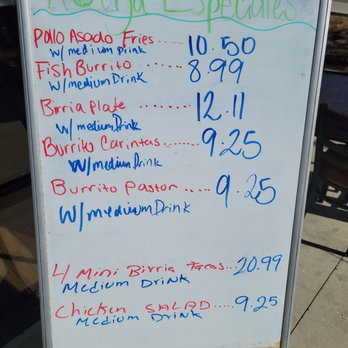 Especiales
Pollo Asado Fries 10.50
w/medium Drink
Fish Burrito ...... 8.99
w/medium Drink
Birria Plate ...... 12.11
w/medium Drink
Burrito Carintas ..... 9.25
w/medium Drink
Burrito Pastor ..... 9.25
w/medium Drink
4 Mini Birria Tacos...20.99
Medium Drink
Chicken SALAD ....9.25
Medium Drink